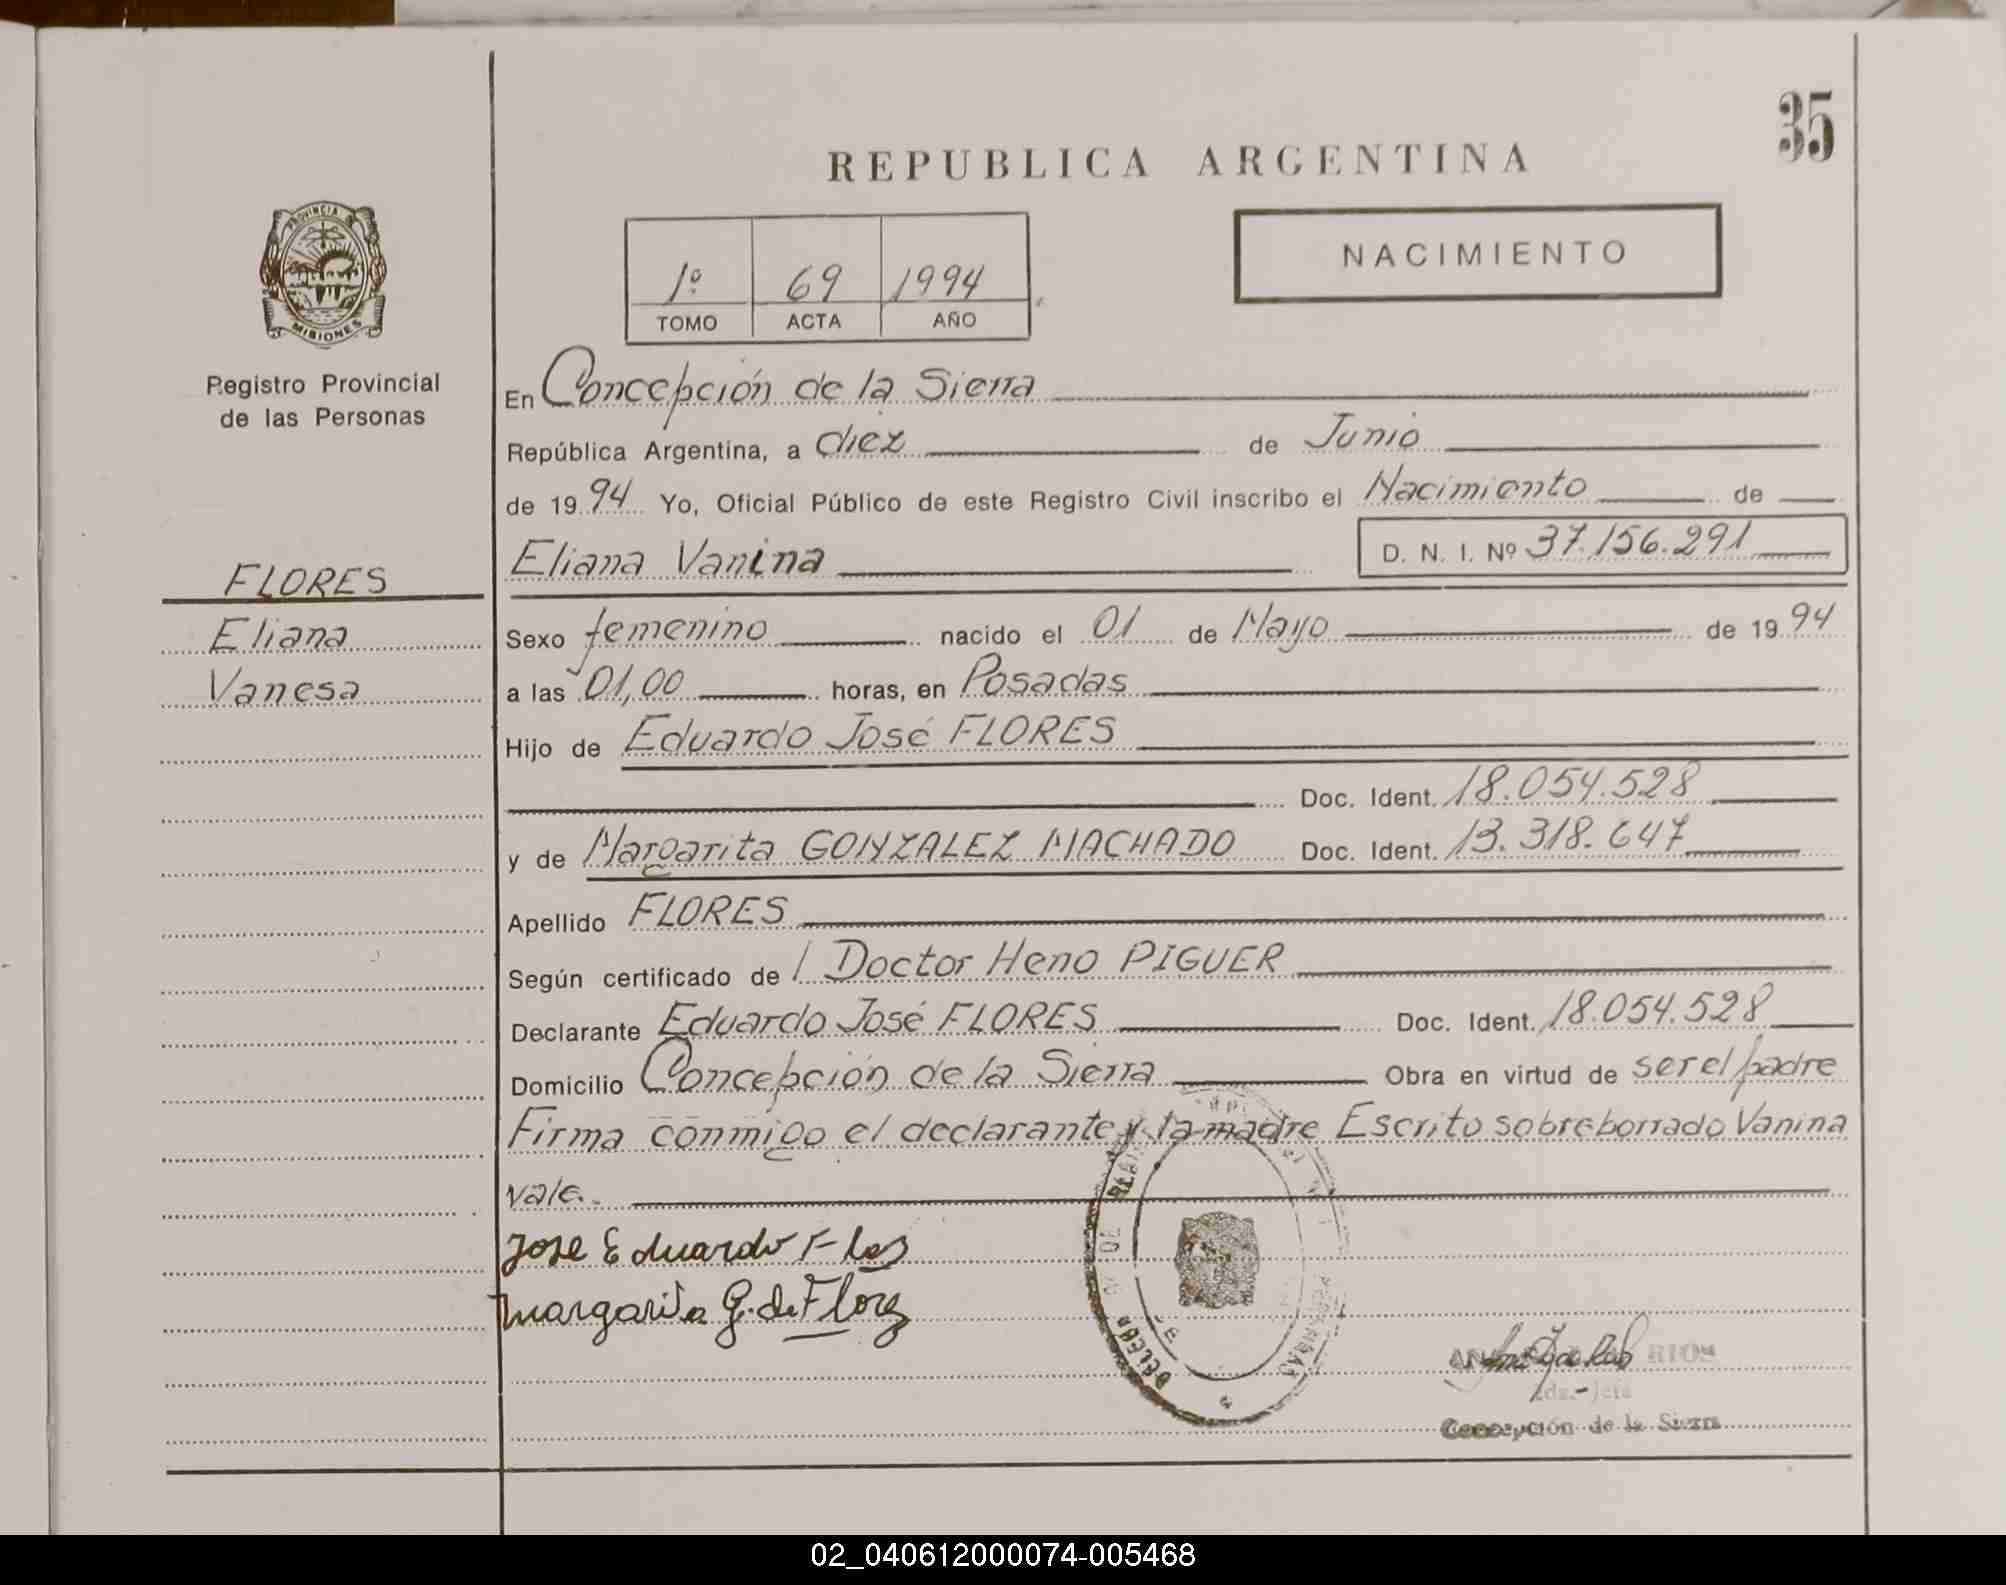 35
REPUBLICA ARGENTINA
PROVINCIA DE
MISIONES
Registro Provincial
de las Personas
1º 69 1994
TOMO ACTA AÑO
NACIMIENTO
En Concepción de la Sierra
República Argentina, a diez de Junio
de 1994 Yo, Oficial Público de este Registro Civil inscribo el Nacimiento de
Eliana Vanina D. N. I. Nº 37.156.291
FLORES
Eliana
Vanesa
Sexo femenino nacido el 01 de Mayo de 1994
a las 01,00 horas, en Posadas
Hijo de Eduardo José FLORES
Doc. Ident. 18.054.528
y de Margarita GONZALEZ MACHADO Doc. Ident. 13.318.647
Apellido FLORES
Según certificado de l Doctor Heno PIGUER
Declarante Eduardo José FLORES Doc. Ident. 18.054.528
Domicilio Concepción de la Sierra Obra en virtud de ser el padre
Firma conmigo el declarante y la madre Escrito sobreborrado Vanina
vale.
Jose Eduardo Flores
Margarita G. de Flores
RIOS
Concepción de la Sierra
02_040612000074-005468